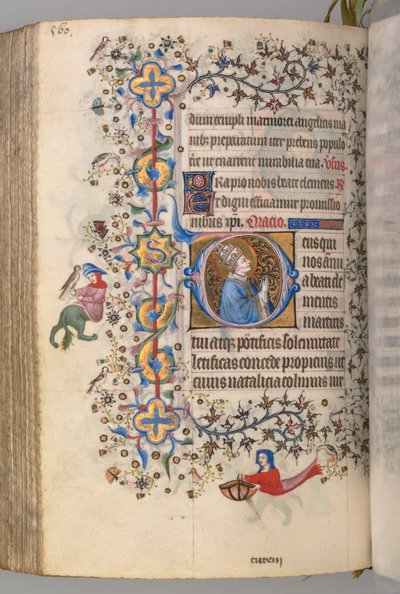 560.
dium templi marmorei angelicis ma
nibz preparatum iter prebens populo
ut enarrent mirabilia tua. Vsus.
Ora pro nobis beate clemens. R
Et digni efficiamur promissio
nibus xpi. Oracio.
Deus qui
nos anni
a beati cle
mentis
martiris
tui atqz pontificis solennitate
letificas concede propicius ut
cuius natalicia colimus uir
tutem